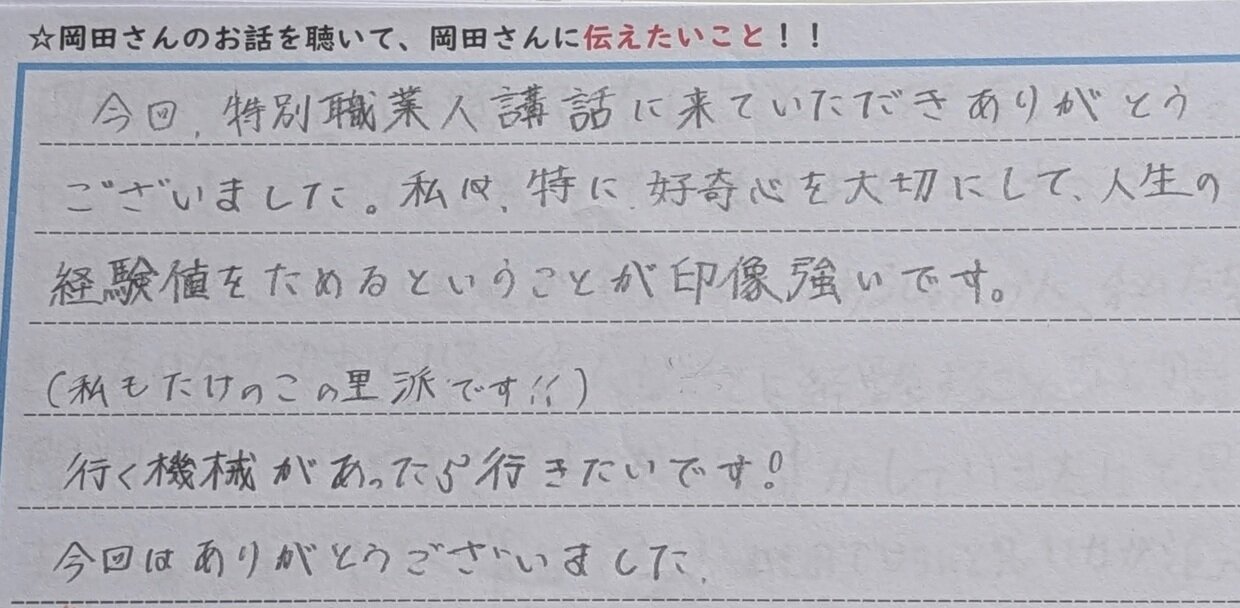 ☆岡田さんのお話を聴いて、岡田さんに伝えたいこと！！
今回、特別職業人講話に来ていただきありがとう
ございました。私は、特に、好奇心を大切にして、人生の
経験値をためるということが印像強いです。
(私もたけのこの里派です!!)
行く機械があったら行きたいです!
今回はありがとうございました.